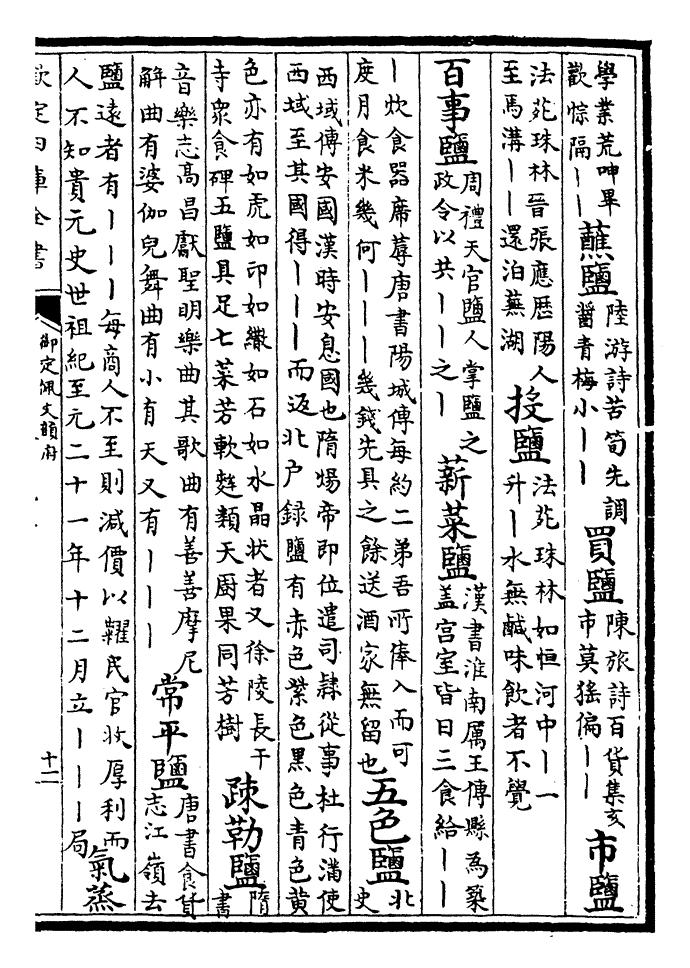 學業荒呻畢歡悰隔丨丨蘸鹽陸游詩苦筍先調醬青梅小丨丨買鹽陳旅詩百貨集亥市莫猺偏丨丨市鹽
法苑珠林晉張應歷陽人至馬溝丨丨還泊蕪湖投鹽法苑珠林如恒河中丨一升丨水無鹹味飲者不覺
百事鹽周禮天官鹽人掌鹽之政令以共丨丨之丨薪菜鹽漢書淮南厲王傳縣為築蓋宫室皆日三食給丨丨
丨炊食器席蓐唐書陽城傳每約二弟吾所俸入而可度月食米幾何丨丨丨幾錢先具之餘送酒家無留也五色鹽北史
西域傳安國漢時安息國也隋煬帝即位遣司隸從事杜行滿使西域至其國得丨丨丨而返北户録鹽有赤色紫色黑色青色黄
色亦有如虎如印如繖如石如水晶状者又徐陵長干寺衆食碑五鹽具足七菜芳軟麰類天厨果同芳樹疎勒鹽隋書
音樂志髙昌獻聖明樂曲其歌曲有善善摩尼解曲有婆伽兒舞曲有小有天又有丨丨丨常平鹽唐書食貨志江嶺去
鹽遠者有丨丨丨每商人不至則減價以糶民官收厚利而人不知貴元史世祖紀至元二十一年十二月立丨丨丨局氣蒸
欽定四庫全書
御定佩文韻府
十二